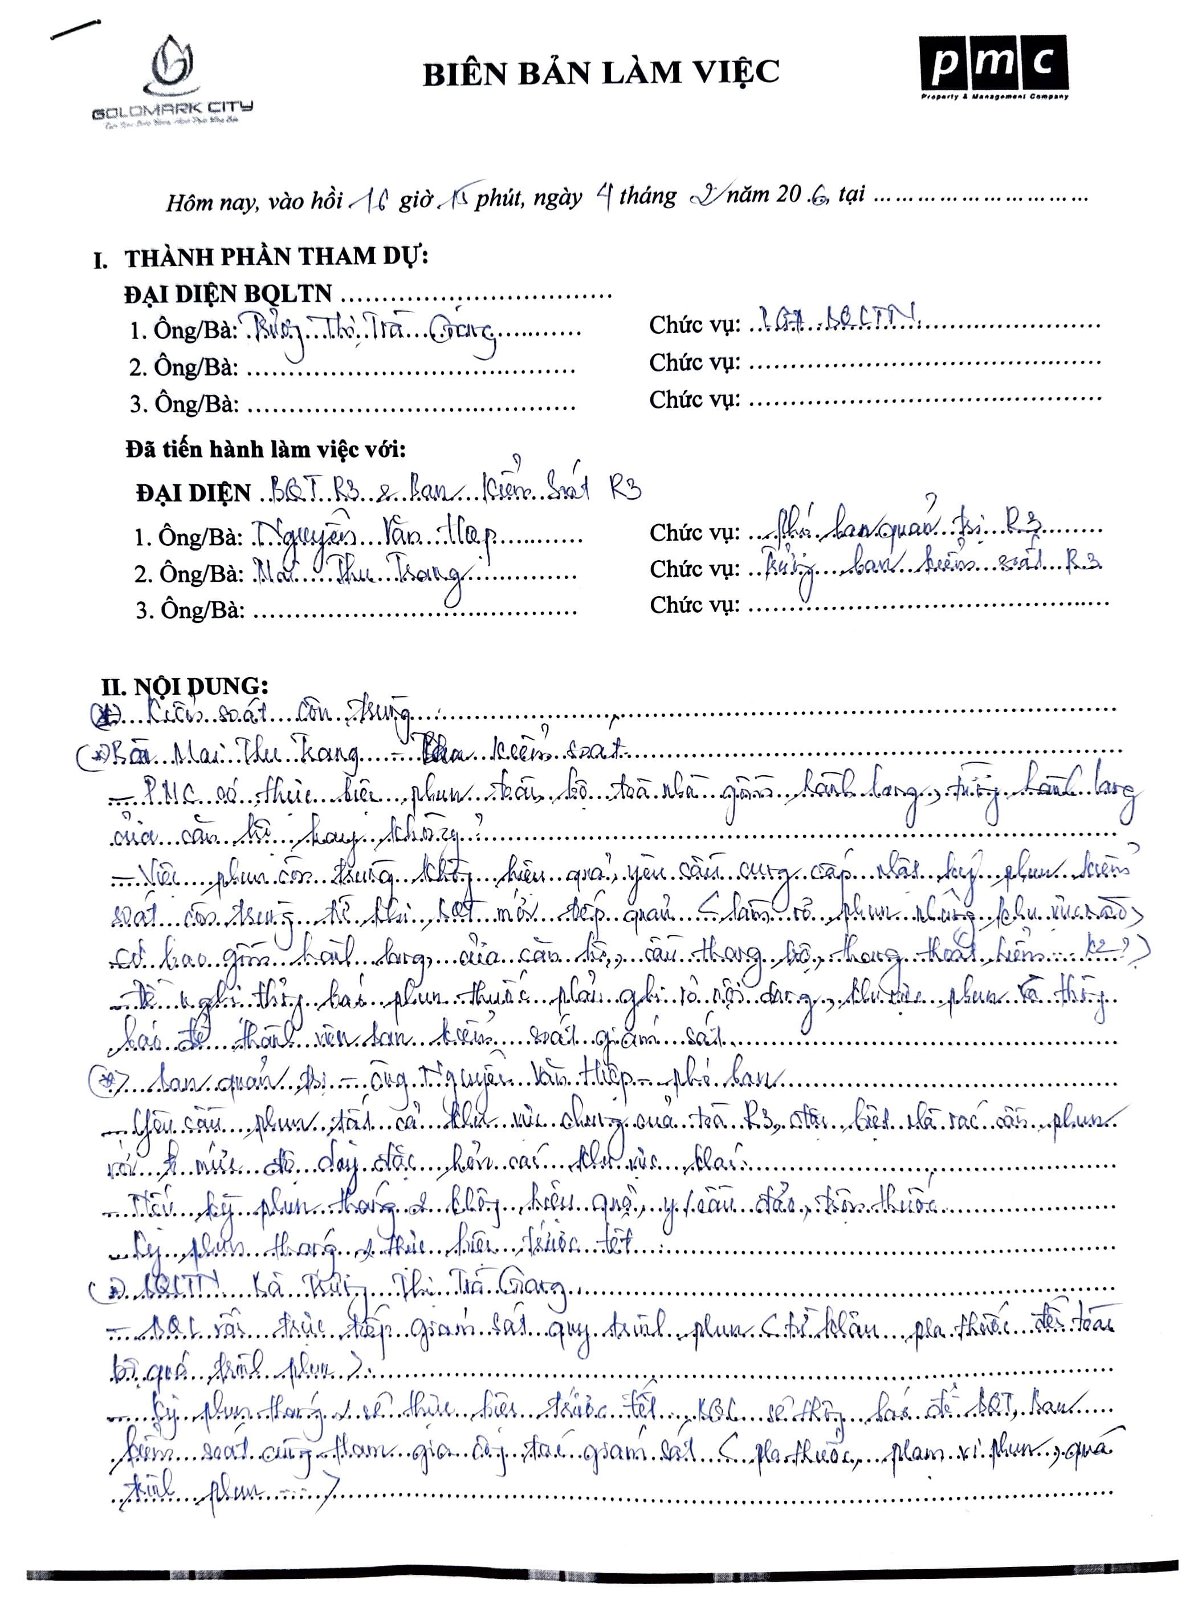 GOLDMARK CITY
BIÊN BẢN LÀM VIỆC
pmc
Property & Management Company
Hôm nay, vào hồi 16 giờ 15 phút, ngày 4 tháng 2 năm 20.6, tại ..............................
I. THÀNH PHẦN THAM DỰ:
ĐẠI DIỆN BQLTN ..............................
1. Ông/Bà: Trương Thị Trà Giang Chức vụ: BQLTN
2. Ông/Bà: .............................. Chức vụ: ..............................
3. Ông/Bà: .............................. Chức vụ: ..............................
Đã tiến hành làm việc với:
ĐẠI DIỆN BQT R3 & Ban kiểm soát R3
1. Ông/Bà: Nguyễn Văn Hiệp Chức vụ: Phó ban quản trị R3
2. Ông/Bà: Mai Thu Trang Chức vụ: Trưởng ban kiểm soát R3
3. Ông/Bà: .............................. Chức vụ: ..............................
II. NỘI DUNG:
Kiểm soát côn trùng
Bà Mai Thu Trang - kiểm soát
- PMC có thực hiện phun toàn bộ toà nhà gồm hành lang, tường hành lang
cửa căn hộ hay không?
- Việc phun côn trùng không hiệu quả, yêu cầu cung cấp nhật ký phun kiểm
soát côn trùng từ khi BQT mới tiếp quản (làm rõ phun những khu vực nào,
có bao gồm hành lang, cửa căn hộ, cầu thang bộ, thang thoát hiểm ... k?)
- Đề nghị thông báo phun thuốc phải ghi rõ nội dung, khu vực phun và thông
báo để thành viên ban kiểm soát giám sát.
Ban quản trị - ông Nguyễn Văn Hiệp - phó ban
- Yêu cầu phun tất cả khu vực chung của toà R3, đặc biệt nhà rác cần phun
với mức độ dày đặc hơn các khu vực khác.
- Nếu kỳ phun tháng 2 không hiệu quả, y/cầu đảo, trộn thuốc.
- Kỳ phun tháng 2 thực hiện trước tết.
BQLTN Bà Trương Thị Trà Giang
- BQL vẫn trực tiếp giám sát quy trình phun (từ khâu pha thuốc đến toàn
bộ quá trình phun).
- Kỳ phun tháng 2 sẽ thực hiện trước tết, BQL sẽ thông báo để BQT, Ban
kiểm soát cùng tham gia công tác giám sát (pha thuốc, phạm vi phun, quá
trình phun ....)